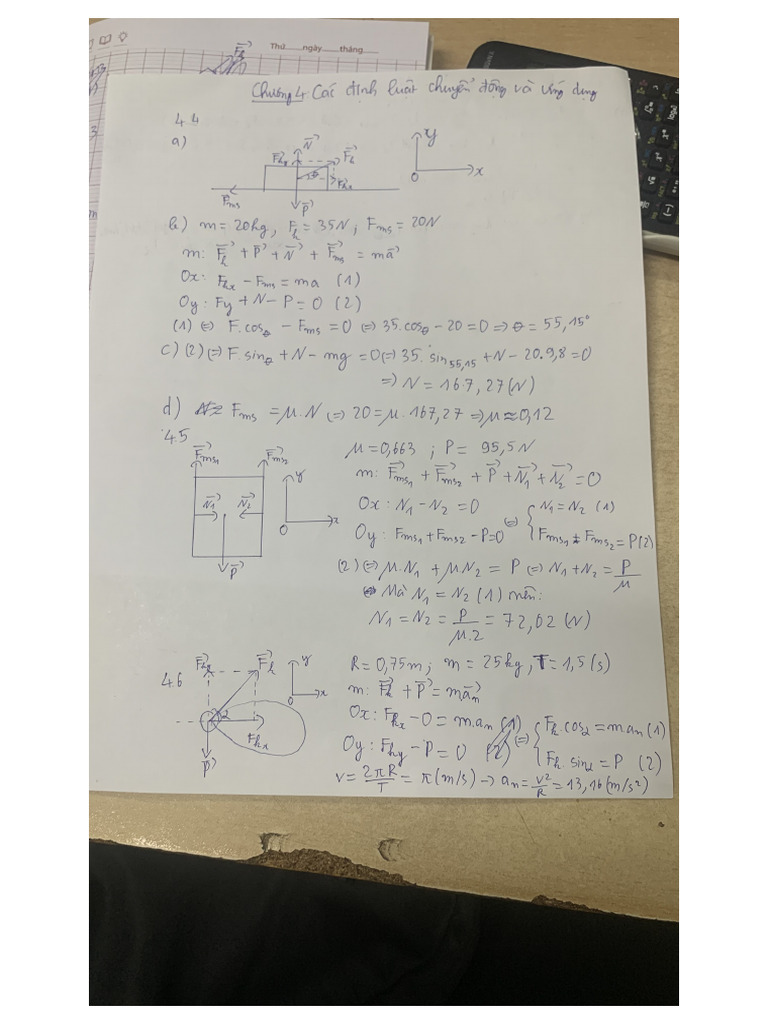 Thứ......ngày.........tháng.........
Chương 4 Các định luật chuyển động và ứng dụng
4.4
a)
N⃗ F⃗k Fky θ Fkx F⃗ms P⃗ y O x
b) m = 20kg, Fk = 35N; Fms = 20N
m: F⃗k + P⃗ + N⃗ + F⃗ms = ma⃗
Ox: Fkx - Fms = ma (1)
Oy: Fy + N - P = 0 (2)
(1) ⇔ F.cosθ - Fms = 0 ⇔ 35.cosθ - 20 = 0 ⇒ θ = 55,15°
c) (2) ⇔ F.sinθ + N - mg = 0 ⇔ 35.sin55,15 + N - 20.9,8 = 0
⇒ N = 167,27 (N)
d) Fms = μ.N ⇔ 20 = μ.167,27 ⇒ μ ≈ 0,12
4.5
F⃗ms1 F⃗ms2 N⃗1 N⃗2 P⃗ y O x
μ = 0,663 ; P = 95,5N
m: F⃗ms1 + F⃗ms2 + P⃗ + N⃗1 + N⃗2 = 0
Ox: N1 - N2 = 0
Oy: Fms1 + Fms2 - P = 0 ⇔ { N1 = N2 (1)
Fms1 + Fms2 = P (2)
(2) ⇔ μ.N1 + μ.N2 = P ⇔ N1 + N2 = P/μ
Mà N1 = N2 (1) nên:
N1 = N2 = P/μ.2 = 72,02 (N)
4.6
F⃗k F⃗kx P⃗ y O x
R = 0,75m; m = 25kg, T = 1,5 (s)
m: F⃗k + P⃗ = ma⃗n
Ox: Fkx - 0 = m.an (1)
Oy: Fky - P = 0 (2) ⇔ { Fk.cos2 = m.an (1)
Fk.sin2 = P (2)
v = 2πR/T = π (m/s) → an = v²/R = 13,16 (m/s²)